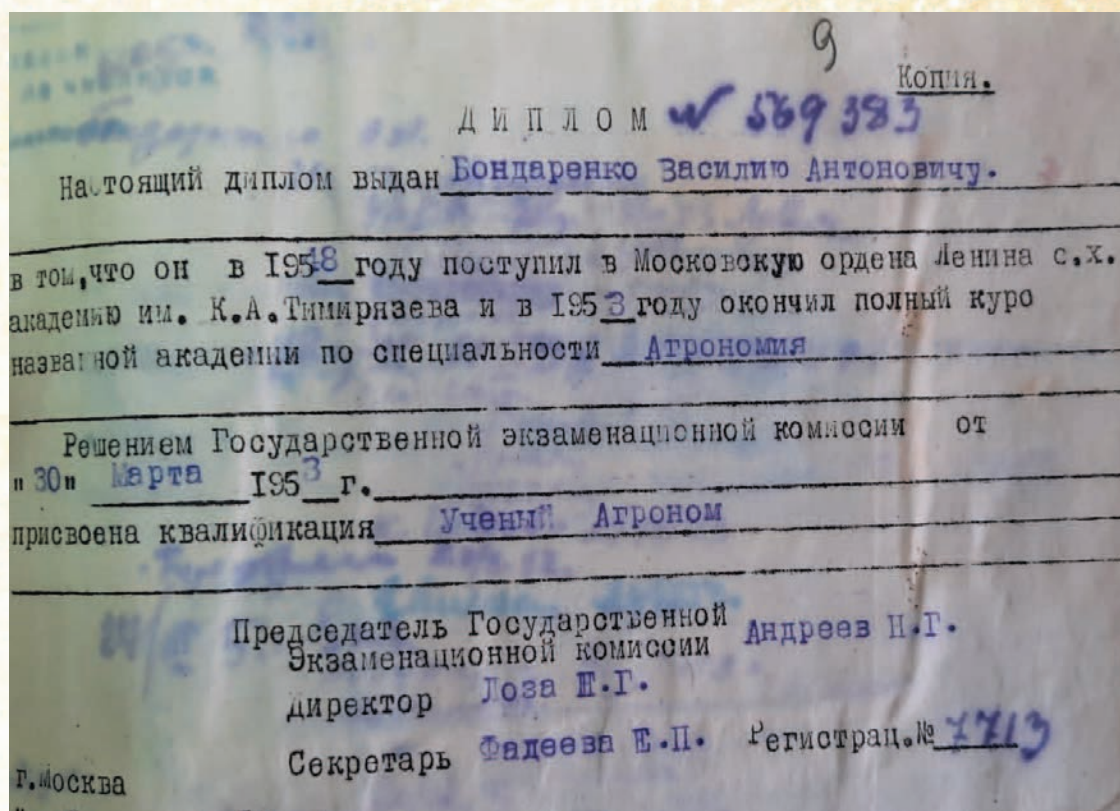 9
Копия.
ДИПЛОМ № 569383
Настоящий диплом выдан Бондаренко Василию Антоновичу.
в том,что он в 1948 году поступил в Московскую ордена Ленина с.х.
академию им. К.А.Тимирязева и в 1953 году окончил полный курс
названной академии по специальности Агрономия
Решением Государственной экзаменационной комиссии от
"30" Марта 1953 г.
присвоена квалификация Ученый Агроном
Председатель Государственной
Экзаменационной комиссии Андреев Н.Г.
Директор Лоза Г.
Секретарь Фадеева Е.П. Регистрац.№ 7713
г.Москва